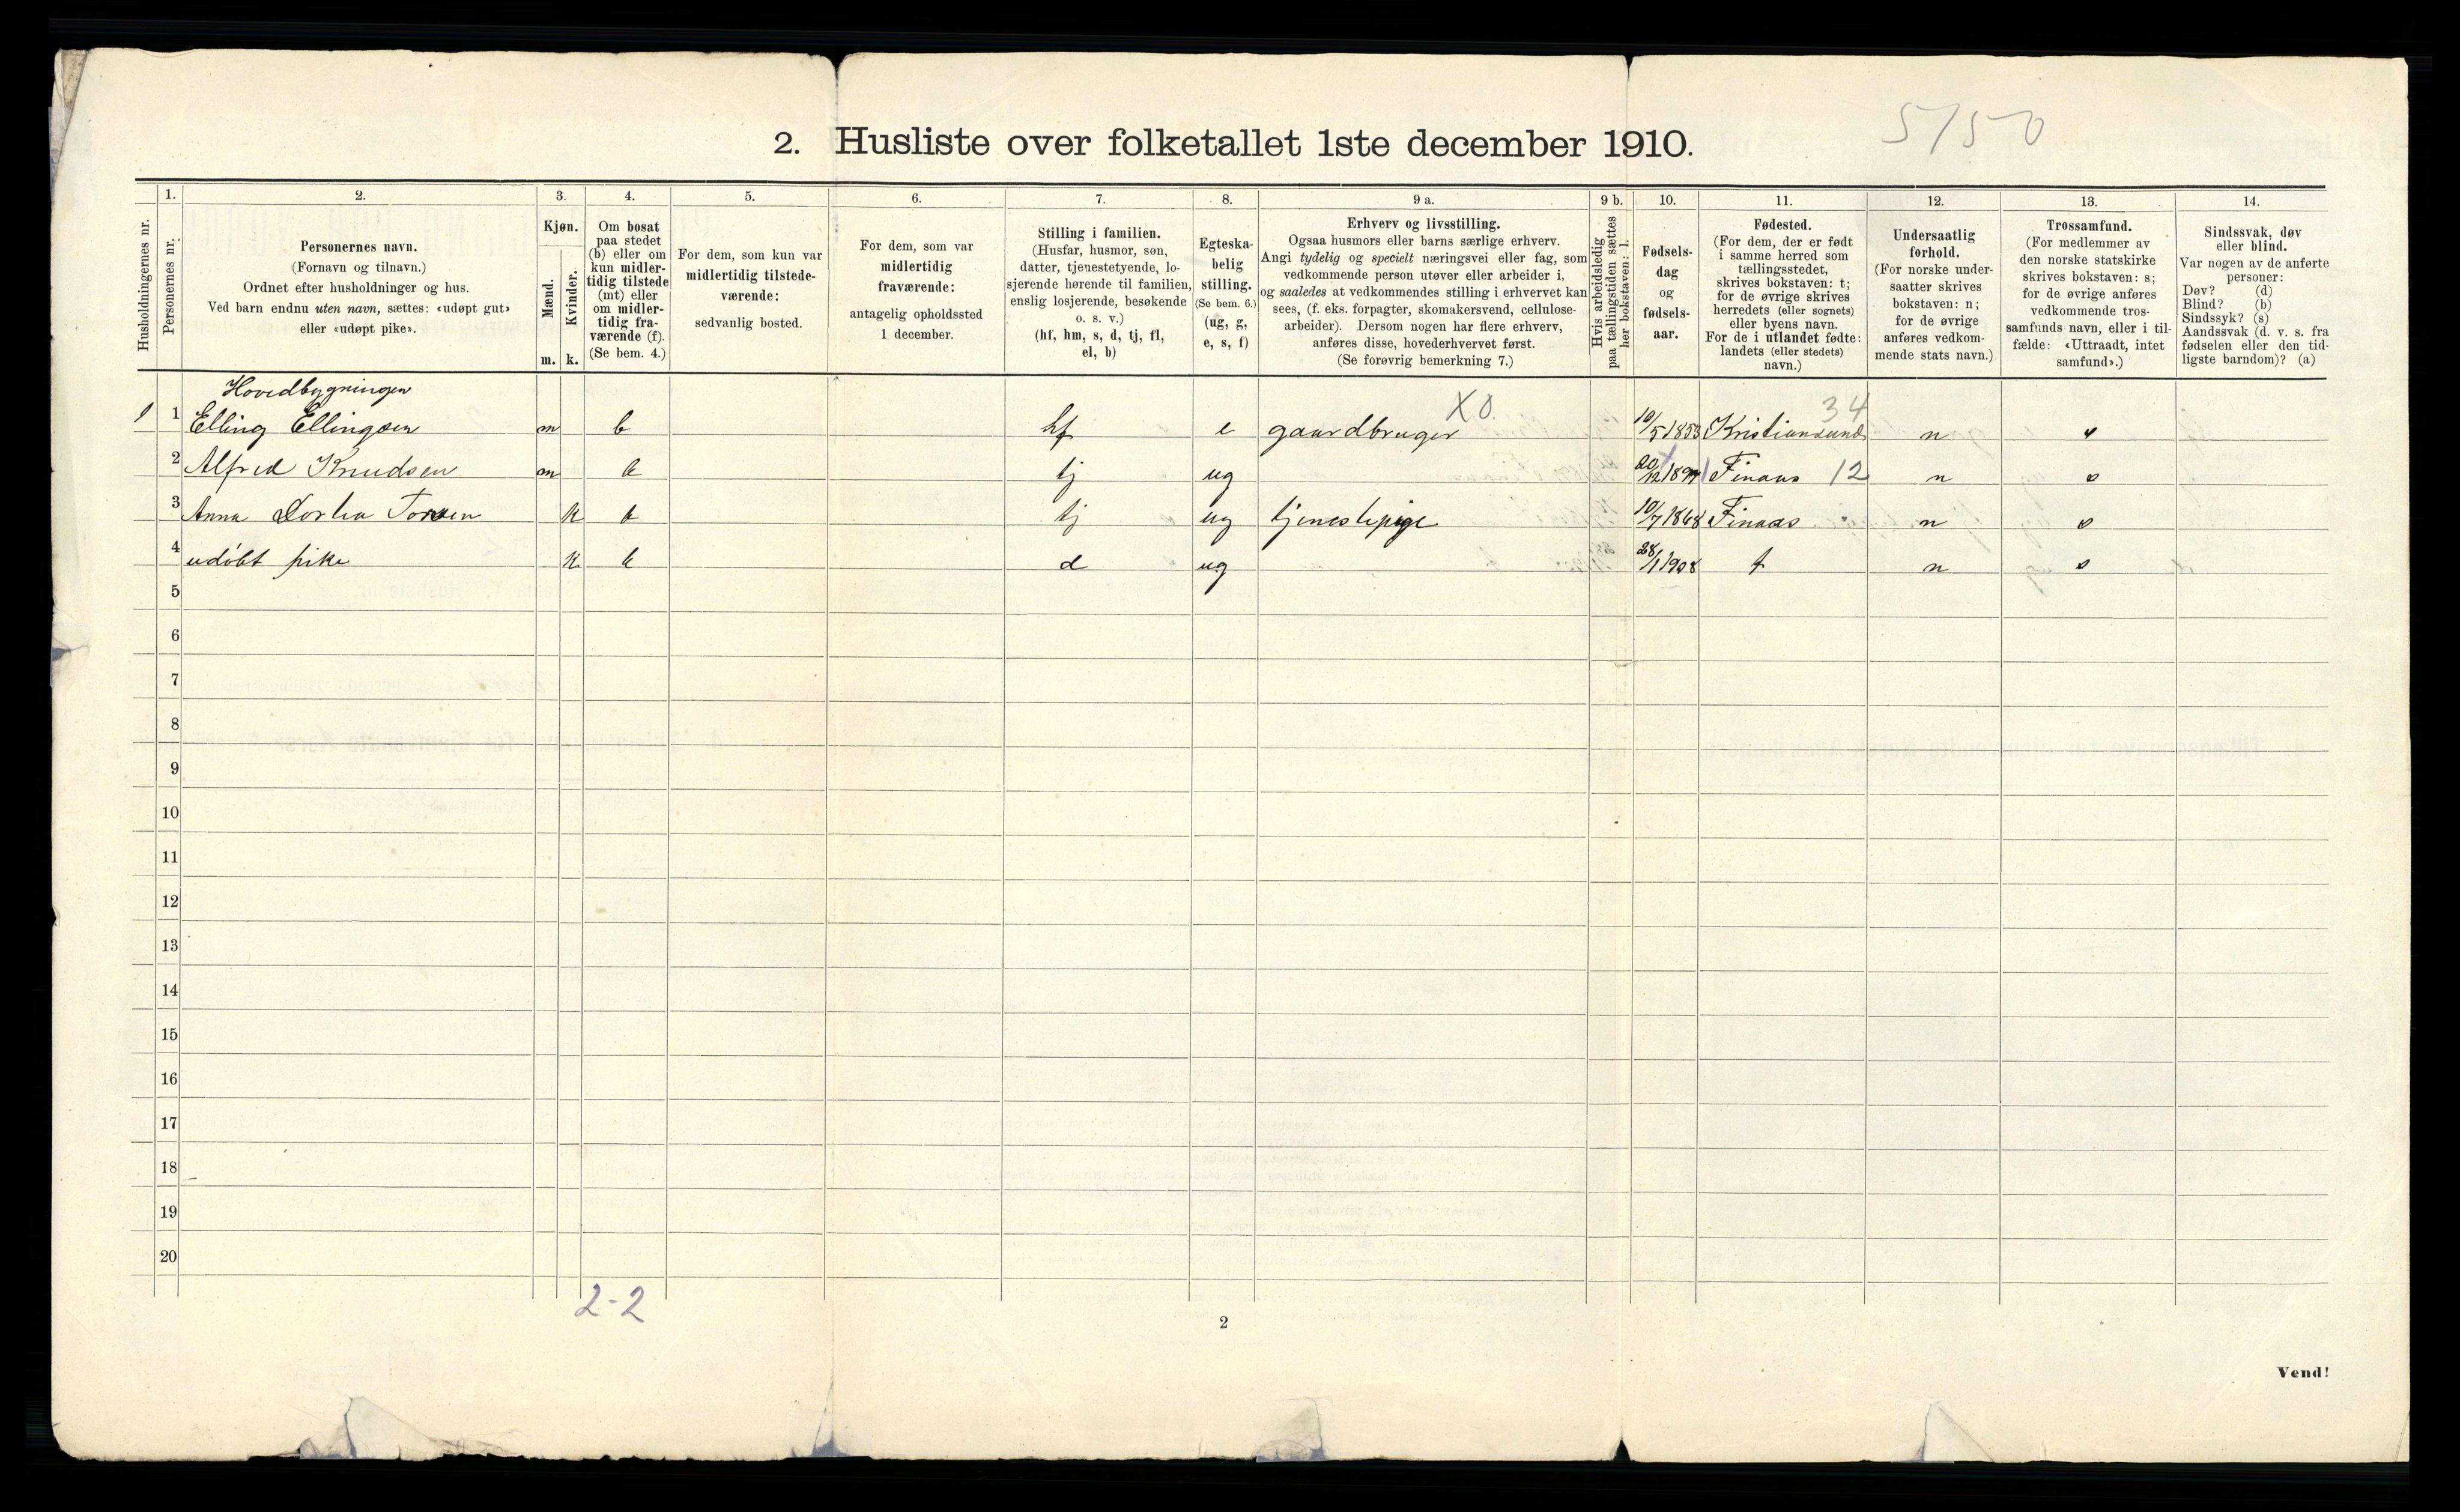 5/50
2. Husliste over folketallet 1ste december 1910.
Husholdningernes nr.
1.
Personernes nr.
2.
Personernes navn.
(Fornavn og tilnavn.)
Ordnet efter husholdninger og hus.
Ved barn endnu uten navn, sættes: «udøpt gut»
eller «udøpt pike».
3.
Kjøn.
Mænd.
Kvinder.
m. k.
4.
Om bosat
paa stedet
(b) eller om
kun midler-
tidig tilstede
(mt) eller
om midler-
tidig fra-
værende (f).
(Se bem. 4.)
5.
For dem, som kun var
midlertidig tilstede-
værende:
sedvanlig bosted.
6.
For dem, som var
midlertidig
fraværende:
antagelig opholdssted
1 december.
7.
Stilling i familien.
(Husfar, husmor, søn,
datter, tjenestetyende, lo-
sjerende hørende til familien,
enslig losjerende, besøkende
o. s. v.)
(hf, hm, s, d, tj, fl,
el, b)
8.
Egteska-
belig
stilling.
(Se bem. 6.)
(ug, g,
e, s, f)
9 a.
Erhverv og livsstilling.
Ogsaa husmors eller barns særlige erhverv.
Angi tydelig og specielt næringsvei eller fag, som
vedkommende person utøver eller arbeider i,
og saaledes at vedkommendes stilling i erhvervet kan
sees, (f. eks. forpagter, skomakersvend, cellulose-
arbeider). Dersom nogen har flere erhverv,
anføres disse, hovederhvervet først.
(Se forøvrig bemerkning 7.)
9 b.
Hvis arbeidsledig
paa tællingstiden sættes
her bokstaven: l.
10.
Fødsels-
dag
og
fødsels-
aar.
11.
Fødested.
(For dem, der er født
i samme herred som
tællingsstedet,
skrives bokstaven: t;
for de øvrige skrives
herredets (eller sognets)
eller byens navn.
For de i utlandet fødte:
landets (eller stedets)
navn.)
12.
Undersaatlig
forhold.
(For norske under-
saatter skrives
bokstaven: n;
for de øvrige
anføres vedkom-
mende stats navn.)
13.
Trossamfund.
(For medlemmer av
den norske statskirke
skrives bokstaven: s;
for de øvrige anføres
vedkommende tros-
samfunds navn, eller i til-
fælde: «Uttraadt, intet
samfund».)
14.
Sindssvak, døv
eller blind.
Var nogen av de anførte
personer:
Døv? (d)
Blind? (b)
Sindssyk? (s)
Aandssvak (d. v. s. fra
fødselen eller den tid-
ligste barndom)? (a)
Hovedbygningen
X0. 34
1 1 Elling Ellingsen m b hf e gaardbruger 10/5 1853 Kristiansund n s
2 Alfred Knudsen m b tj ug 20/12 Finaas 12 n s
3 Anna Dortea k b tj ug tjenestepige 10/7 1868 Finaas n s
4 udöbt pike k b d ug 28/1 1908 t n s
5
6
7
8
9
10
11
12
13
14
15
16
17
18
19
20
2-2
2
Vend!